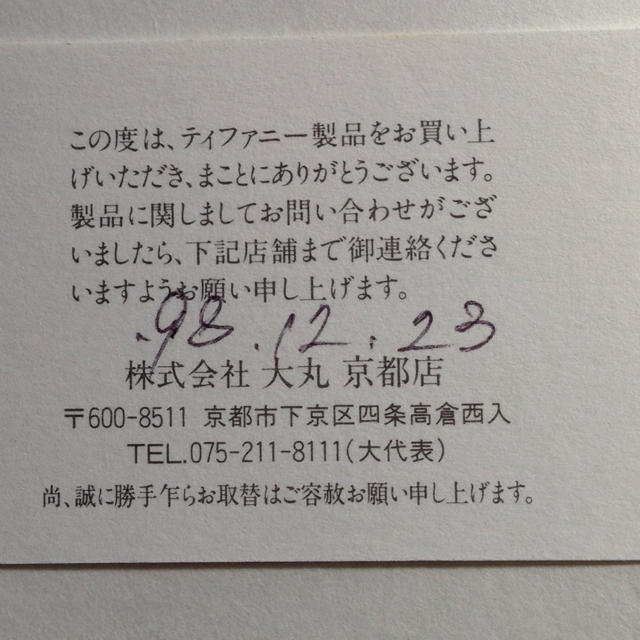 この度は、ティファニー製品をお買い上
げいただき、まことにありがとうございます。
製品に関しましてお問い合わせがござ
いましたら、下記店舗まで御連絡くださ
いますようお願い申し上げます。
.98.12.23
株式会社 大丸 京都店
〒600-8511 京都市下京区四条高倉西入
TEL.075-211-8111(大代表)
尚、誠に勝手乍らお取替はご容赦お願い申し上げます。